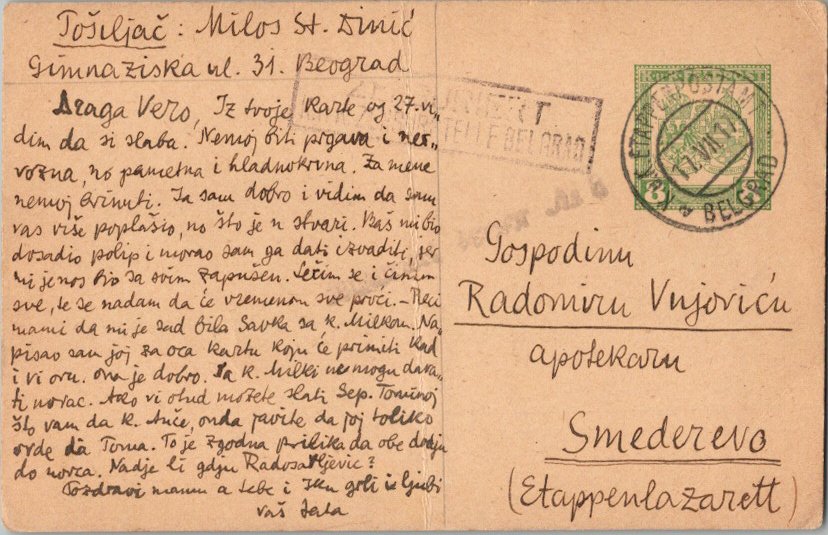 Pošiljač: Miloš St. Dinić
Gimnaziska ul. 31. Beograd
Draga Vero, Iz tvoje karte og 27. vi-
dim da si slaba. Nemoj biti prgava i ner-
vozna, no pametna i hladnokrvna. Za mene
nemoj brinuti. Ja sam dobro i vidim da sam
vas više poplašio, no što je u stvari. Baš mi bio
dosadio polip i morao sam ga dati izvaditi, jer
mi je nos bio sa svim zapušen. Lečim se i činim
sve, te se nadam da će vremenom sve proći. – Reci
mami da mi je sad bila Savka sa k. Milkom. Na-
pisao sam joj za oca kartu koju će primiti kad
i vi ovu. Ona je dobro. Ja k. Milki ne mogu dava-
ti novac. Ako vi otud možete slati Sep. Tominoj
što vam da k. Anče, onda javite da joj toliko
ovde da Toma. To je zgodna prilika da obe dodju
do novca. Nadje li gdju Radosavljević?
Pozdravi mamu a tebe i grli i ljubi
vaš
ZENSURIERT
BELGRAD
K.u.K. ETAPPENPOSTAMT
17.VII.17
BELGRAD
Gospodinu
Radomiru Vujoviću
apotekaru
Smederevo
(Etappenlazarett)